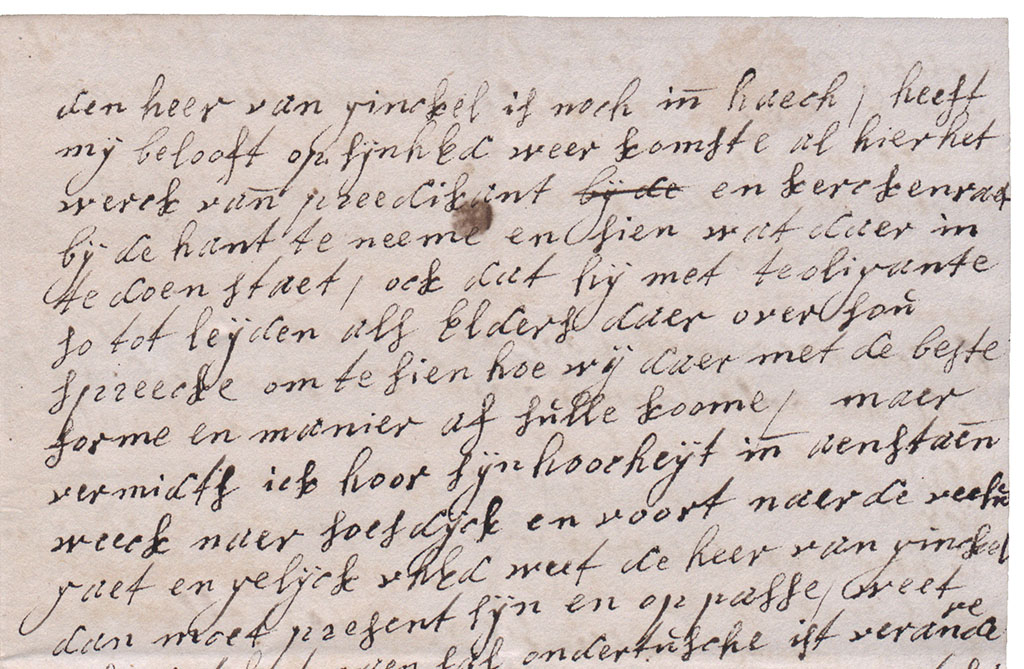 den heer van ginckel is noch in haech, heeft
my belooft op sijnhEd weer komste al hier het
werck van preedikant bij de en kerckenraet
bij de hant te neeme en sien wat daer in
te doen staet, ock dat hij met teoligante
so tot leijden als Elders daer over soú
spreecke om te sien hoe wij daer met de beste
forme en manier af súlle koome, maer
vermidts ick hoor sijn hoocheijt in aenstaen
weeck naer soesdijck en voort naer de
gaet en gelijck uhEd weet de heer van ginckel
dan moet present sijn en oppasse, weet
ondertúsche ist verande
re